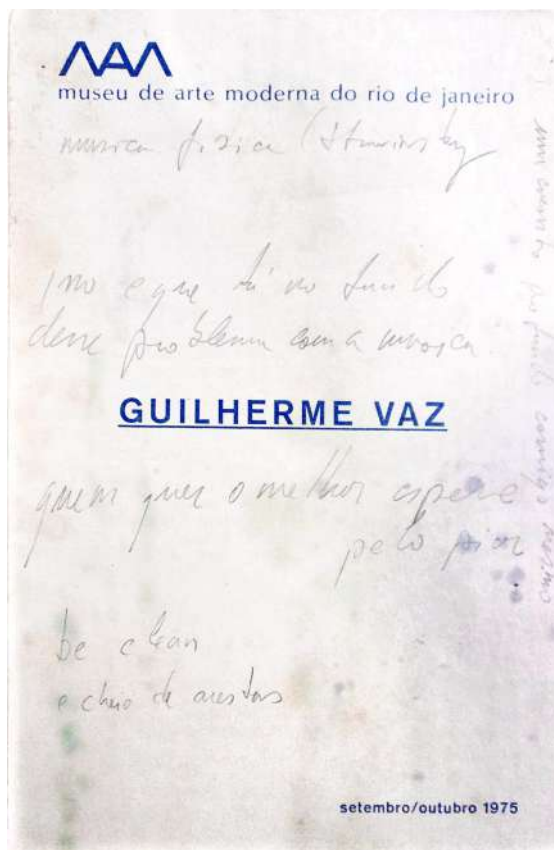 MAM
museu de arte moderna do rio de janeiro
musica fisica (Stravinsky
que tá no fundo
desse problema com a musica.
GUILHERME VAZ
quem quer o melhor espere
pelo pior
be clean
e cheio de arestas
setembro/outubro 1975
profundo comigo mesmo